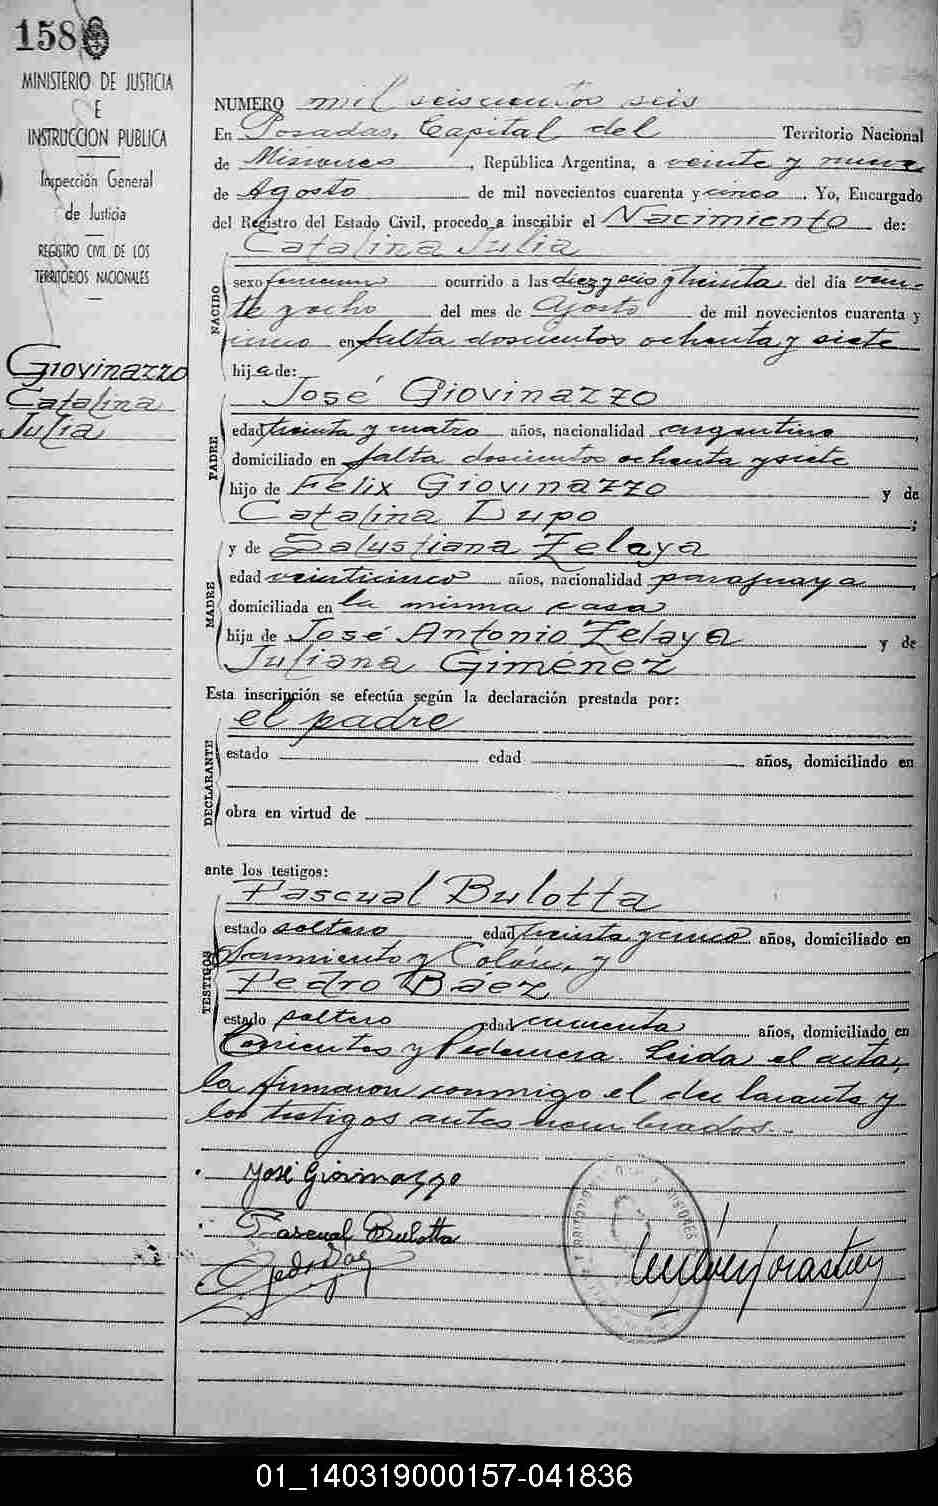 158
MINISTERIO DE JUSTICIA
E
INSTRUCCION PUBLICA
Inspección General
de Justicia
REGISTRO CIVIL DE LOS
TERRITORIOS NACIONALES
Giovinazzo
Catalina
Julia
NUMERO mil seiscientos seis
En Posadas, Capital del Territorio Nacional
de Misiones, República Argentina, a veinte y nueve
de Agosto de mil novecientos cuarenta y cinco. Yo, Encargado
del Registro del Estado Civil, procedo a inscribir el Nacimiento de:
Catalina Julia
NACIDO
sexo femenino ocurrido a las diez y seis y treinta del día vein-
te y ocho del mes de Agosto de mil novecientos cuarenta y
cinco en Salta doscientos ochenta y siete
hija de:
José Giovinazzo
PADRE
edad treinta y cuatro años, nacionalidad argentino,
domiciliado en Salta doscientos ochenta y siete
hijo de Félix Giovinazzo y de
Catalina Lupo;
y de Salustiana Zelaya
MADRE
edad veinticinco años, nacionalidad paraguaya,
domiciliada en la misma casa
hija de José Antonio Zelaya y de
Juliana Giménez
Esta inscripción se efectúa según la declaración prestada por:
el padre
DECLARANTE
estado edad años, domiciliado en
obra en virtud de
ante los testigos:
Pascual Bulotta
TESTIGOS
estado soltero edad treinta y cinco años, domiciliado en
Sarmiento y Colón, y
Pedro Báez
estado soltero edad cuarenta años, domiciliado en
Corrientes y Pedernera. Leida el acta,
la firmaron conmigo el declarante y
los testigos antes nombrados.
José Giovinazzo
Pascual Bulotta
01_140319000157-041836